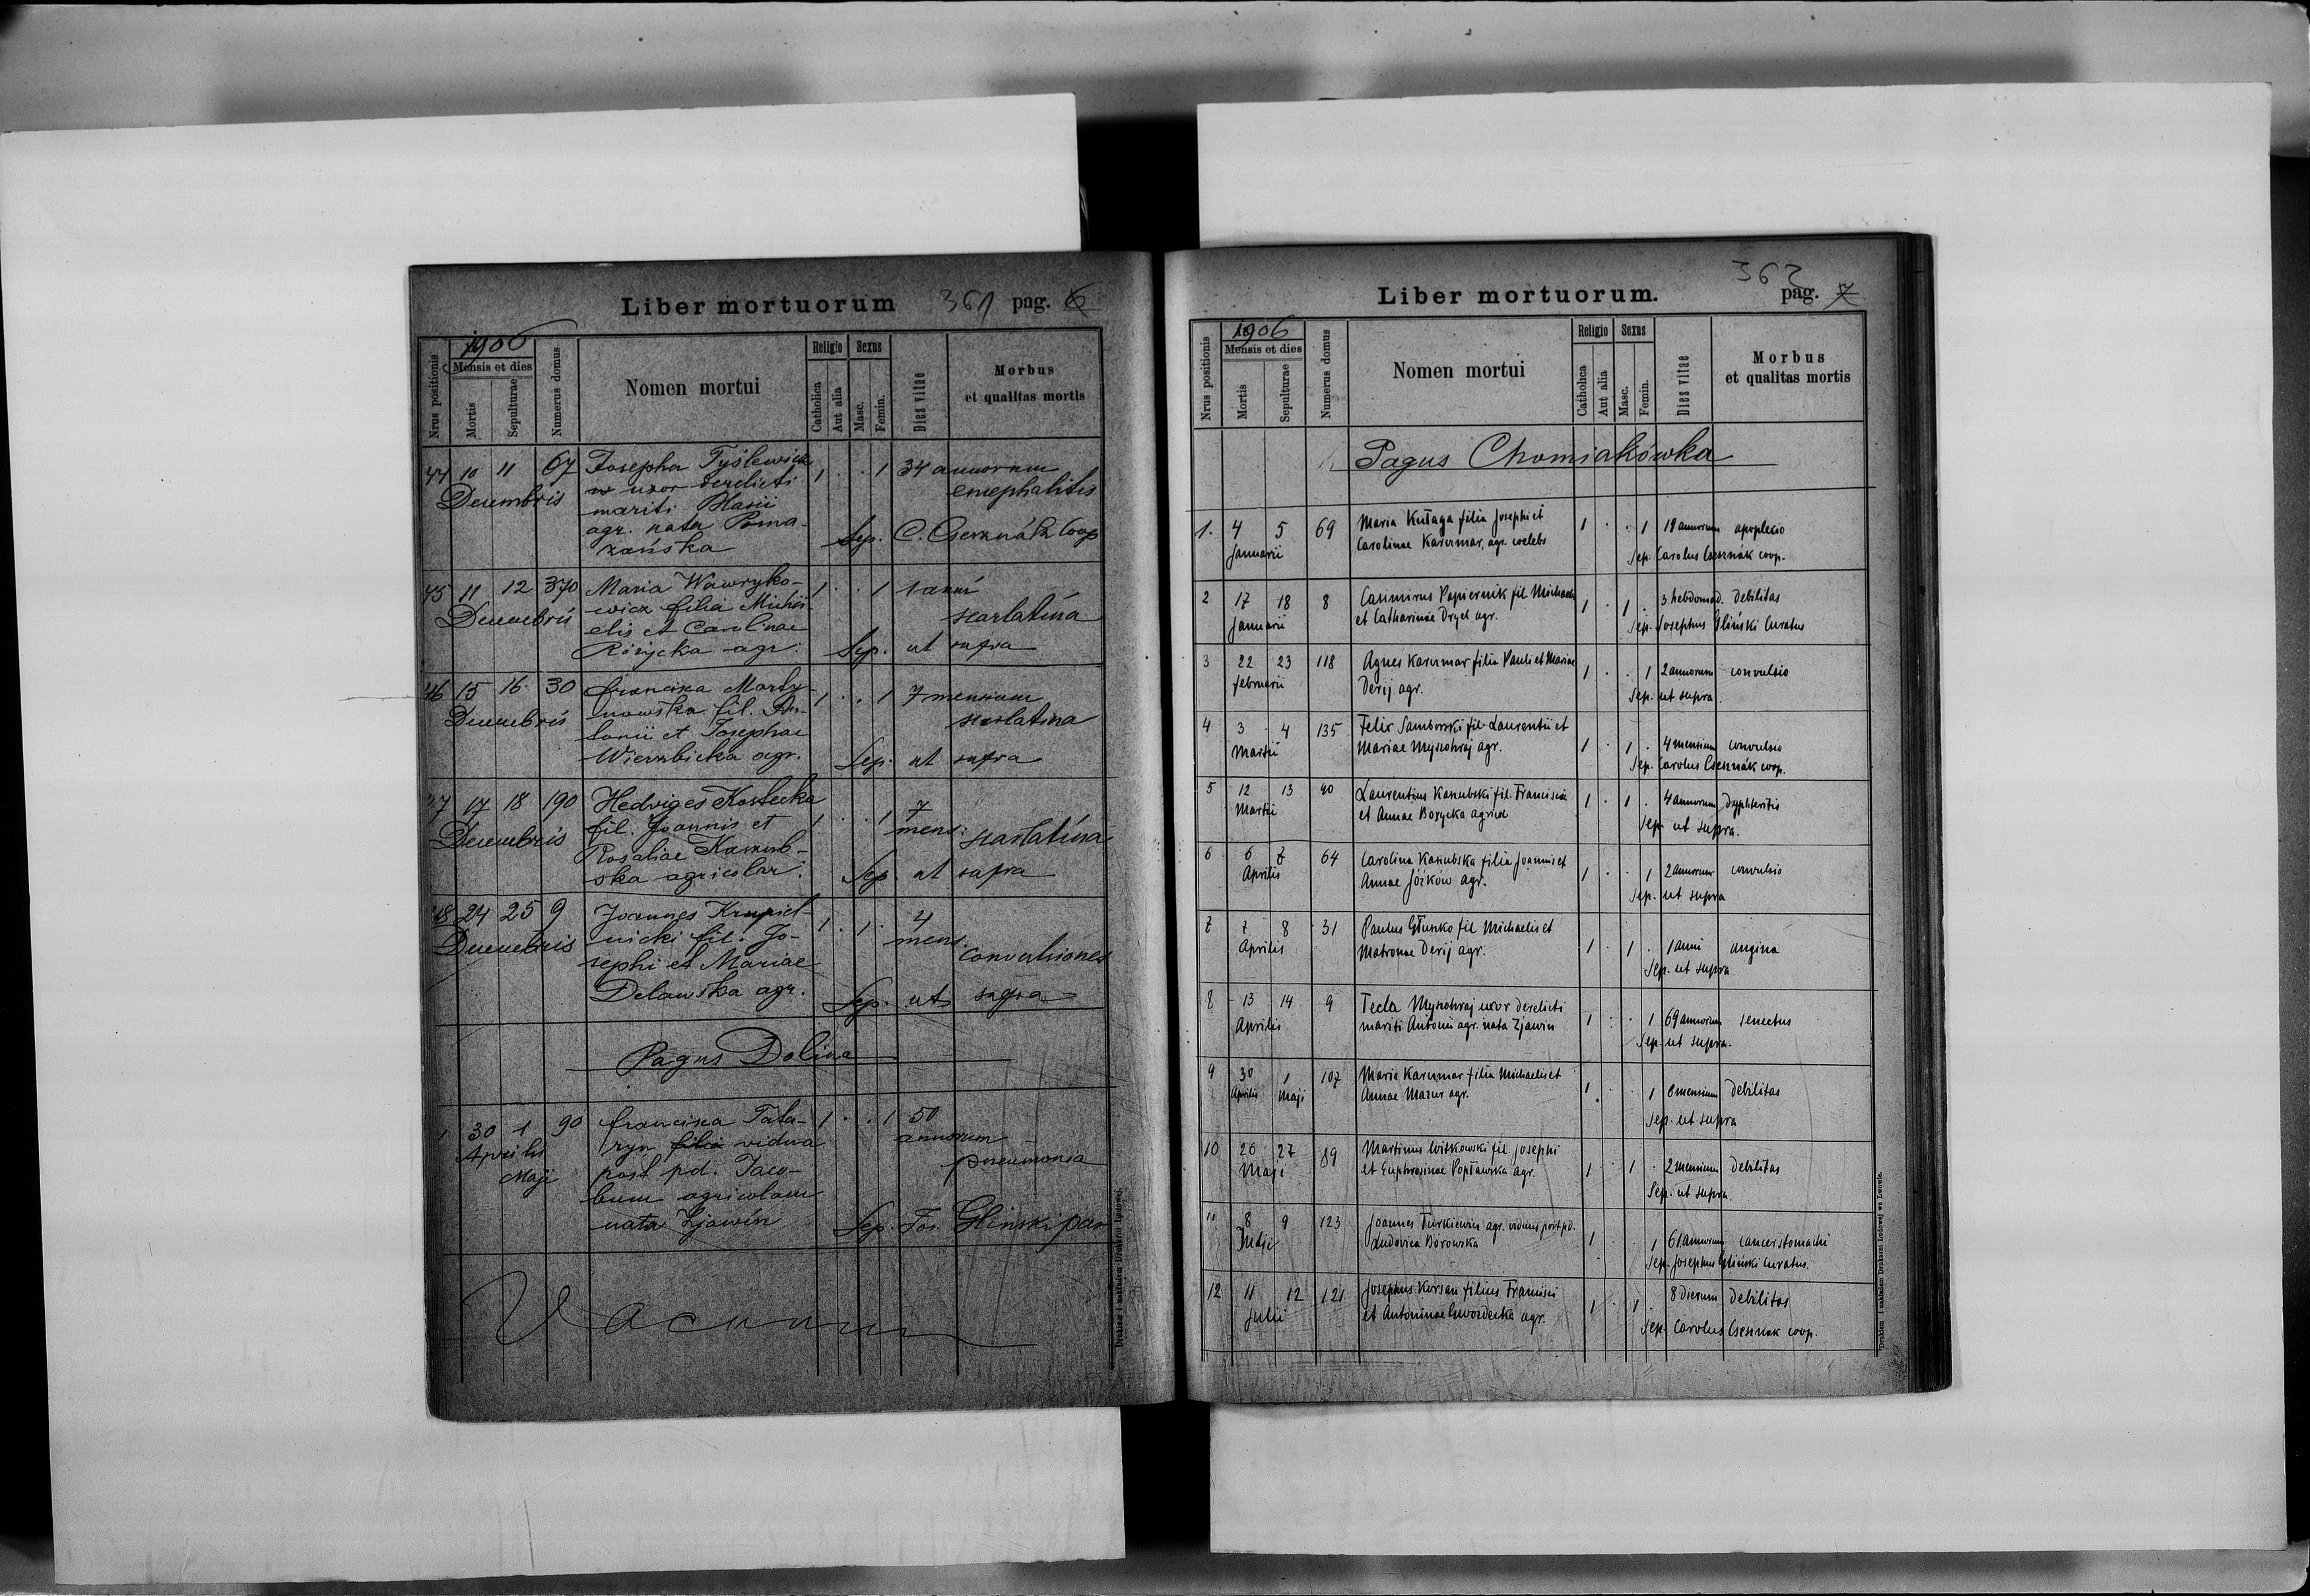 Liber mortuorum 361 pag. 6
1906
Nrus positionis
Mensis et dies
Mortis
Sepulturae
Numerus domus
Nomen mortui
Religio
Catholica
Aut alia
Sexus
Masc.
Femin.
Dies vitae
Morbus
et qualitas mortis
44 10 11 67 Josepha Tyślewicz 1 . . 1 34 annorum
Decembris
uxor derelicti encephalitis
mariti Blasii
agr. nata Poma-
rańska Sep. C. Csesznák Coop
45 11 12 370 Maria Wawryko- 1 . . 1 1 anni
Decembris ewicz filia Micha- scarlatina
elis et Carolinae
Różycka agr. Sep. ut supra
46 15 16 30 Francisca Marty- 1 . . 1 7 mensium
Decembris nowska fil. An- scarlatina
tonii et Josephae
Wierzbicka agr. Sep. ut supra
47 17 18 190 Hedviges Kostecka 1 . . 1 7
Decembris fil. Joannis et mens. scarlatina
Rosaliae Kazub-
ska agricolar. Sep ut supra
48 24 25 9 Joannes Krupiel- 1 . 1 . 4
Decembris nicki fil. Jo- mens.
sephi et Mariae convulsiones
Delawska agr. Sep. ut supra
Pagus Dolina
1 30 1 90 Francisca Tata- 1 . . 1 50
Aprilis ryn filia vidua annorum
Maji post pd. Jaco- pneumonia
bum agricolam
nata Zjawin Sep. Jos. Glinski par
Vacuum
Drukiem i nakładem Drukarni Ludowej.
Liber mortuorum. 362 pag. 7
1906
Nrus positionis
Mensis et dies
Mortis
Sepulturae
Numerus domus
Nomen mortui
Religio
Catholica
Aut alia
Sexus
Masc.
Femin.
Dies vitae
Morbus
et qualitas mortis
Pagus Chomiakówka
1. 4 5 69 Maria Kułaga filia Josephi et 1 . . 1 19 annorum apoplexio
Januarii Carolinae Karczmar, agr. coelebs Sep. Carolus Csesznák coop.
2 17 18 8 Casimirus Papiernik fil Michaelis 1 . 1 . 3 hebdomad. debilitas
Januarii et Catharinae Dryel agr. Sep. Josephus Gliński Curatus
3 22 23 118 Agnes Karczmar filia Pauli et Mariae 1 . . 1 2 annorum convulsio
Februarii Derij agr. Sep. ut supra.
4 3 4 135 Felix Samborski fil. Laurentii et
Martii Mariae Myszohraj agr. 1 . 1 . 4 mensium convulsio
Sep. Carolus Csesznák coop.
5 12 13 90 Laurentius Kazubski fil. Francisci 1 . 1 . 4 annorum Dyphteritis
Martii et Annae Borycka agricol Sep. ut supra.
6 6 7 64 Carolina Kazubska filia Joannis et 1 . . 1 2 annorum convulsio
Aprilis Annae Jóźków agr. Sep. ut supra
7 7 8 31 Paulus Głuszko fil Michaelis et
Aprilis Matronae Derij agr. 1 . 1 . 1 anni angina
Sep. ut supra
8 13 14 9 Tecla Myszohraj uxor derelicti
Aprilis mariti Antonii agr. nata Zjawin 1 . . 1 69 annorum senectus
Sep. ut supra.
9 30 1 107 Maria Karczmar filia Michaelis et
Aprilis Maji Annae Mazur agr. 1 . . 1 8 mensium debilitas
Sep. ut supra
10 26 27 89 Martinus Witkowski fil. Josephi
Maji et Euphrosinae Popławska agr. 1 . 1 . 2 mensium debilitas
Sep. ut supra.
11 8 9 123 Joannes Turkiewicz agr. viduus post pd.
Ludovica Borowska 1 . . 1 61 annorum cancer stomachi
Sep. Josephus Gliński Curatus.
12 11 12 121 Josephus Korsan filius Francisci 8 dierum debilitas
Julii et Antoninae Gwozdecka agr. 1 . 1 .
Sep. Carolus Csesznak coop.
Drukiem i nakładem Drukarni Ludowej we Lwowie.